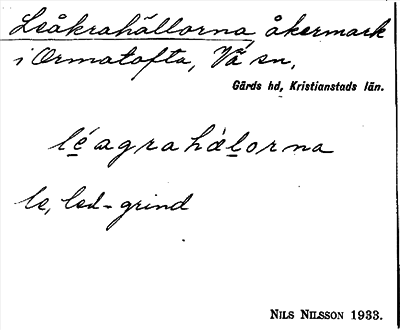 Leåkrahällorna, åkermark
i Ormatofta, Vä sn,
Gärds hd, Kristianstads län.
léagrahálorna
le, led-grind
NILS NILSSON 1933.